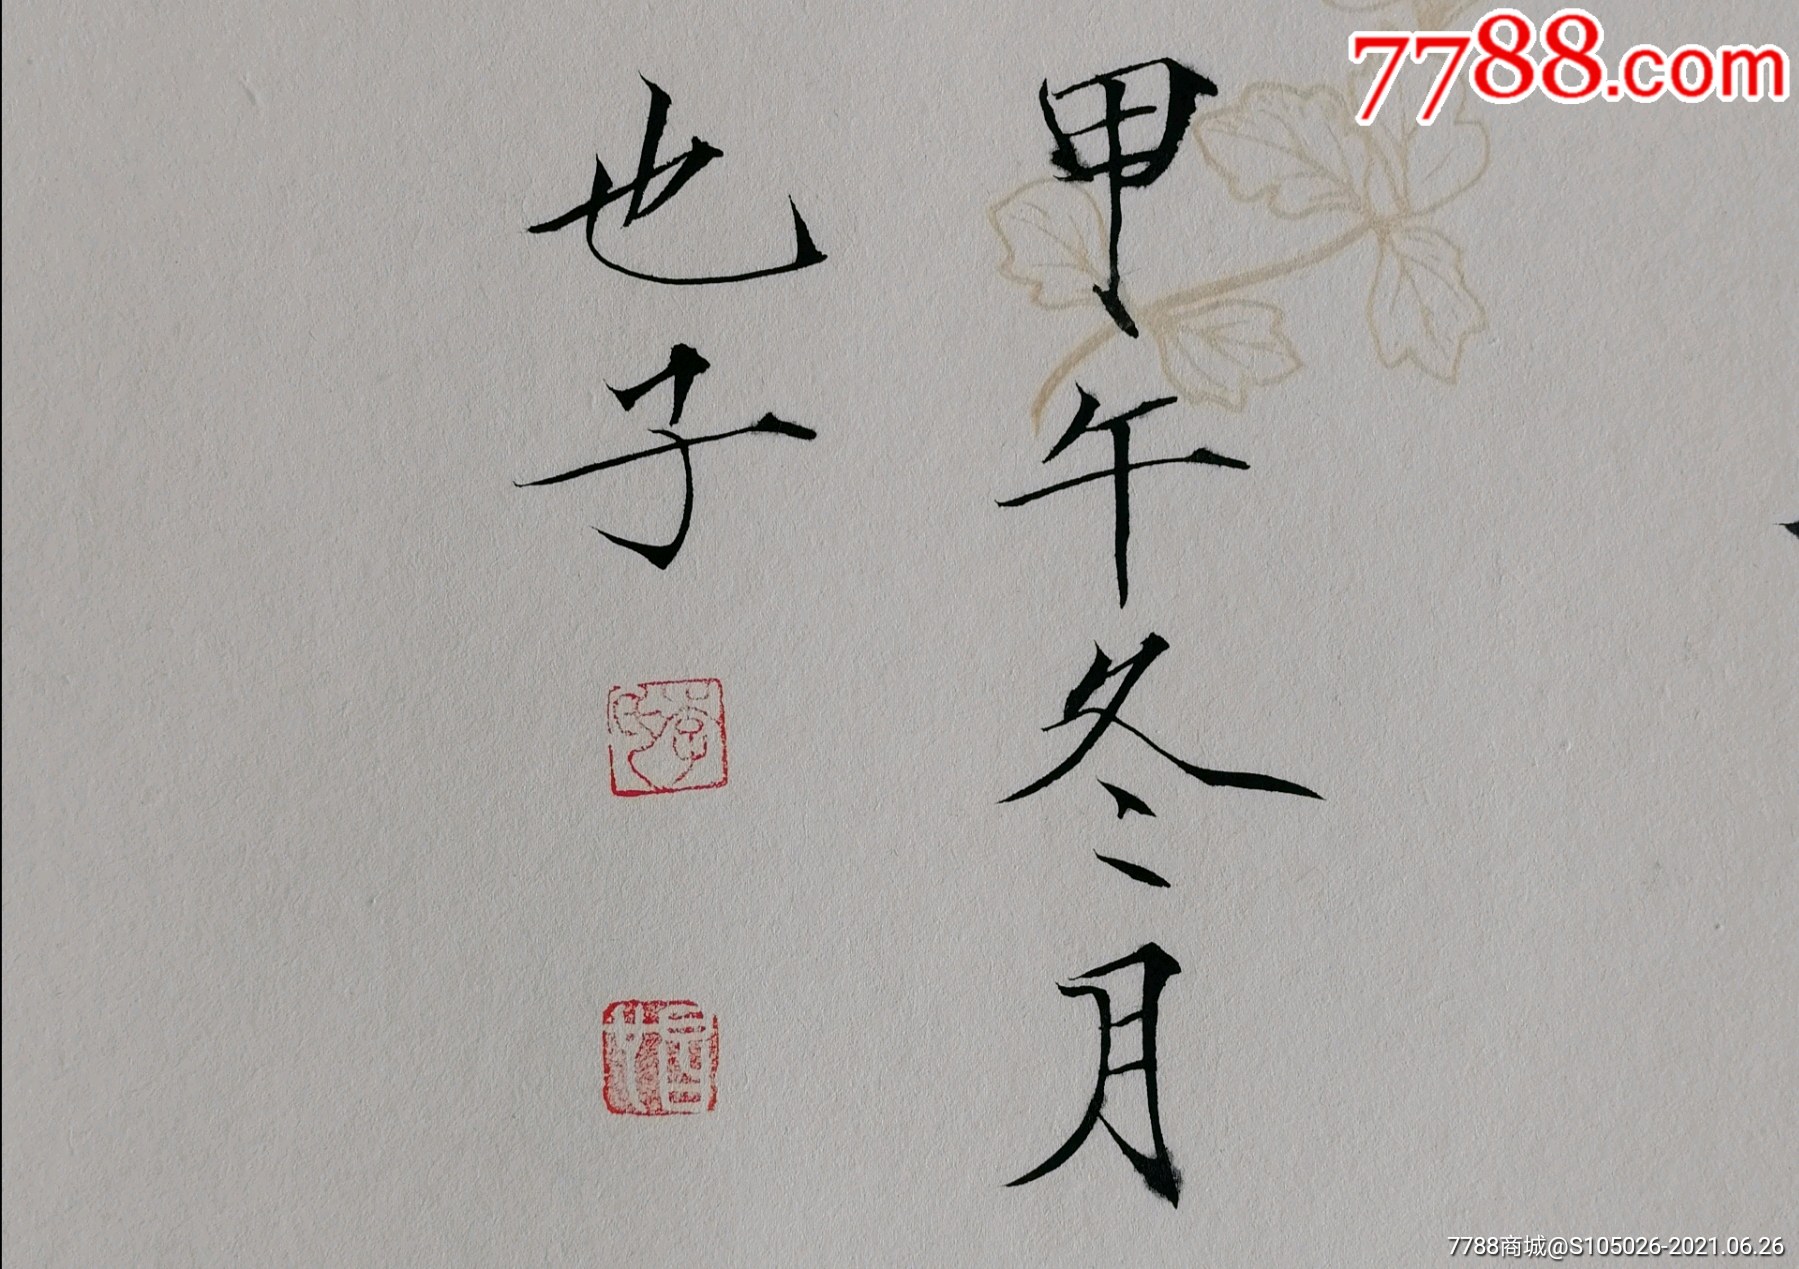 7788.com
甲午冬月
也子
7788商城@S105026-2021.06.26